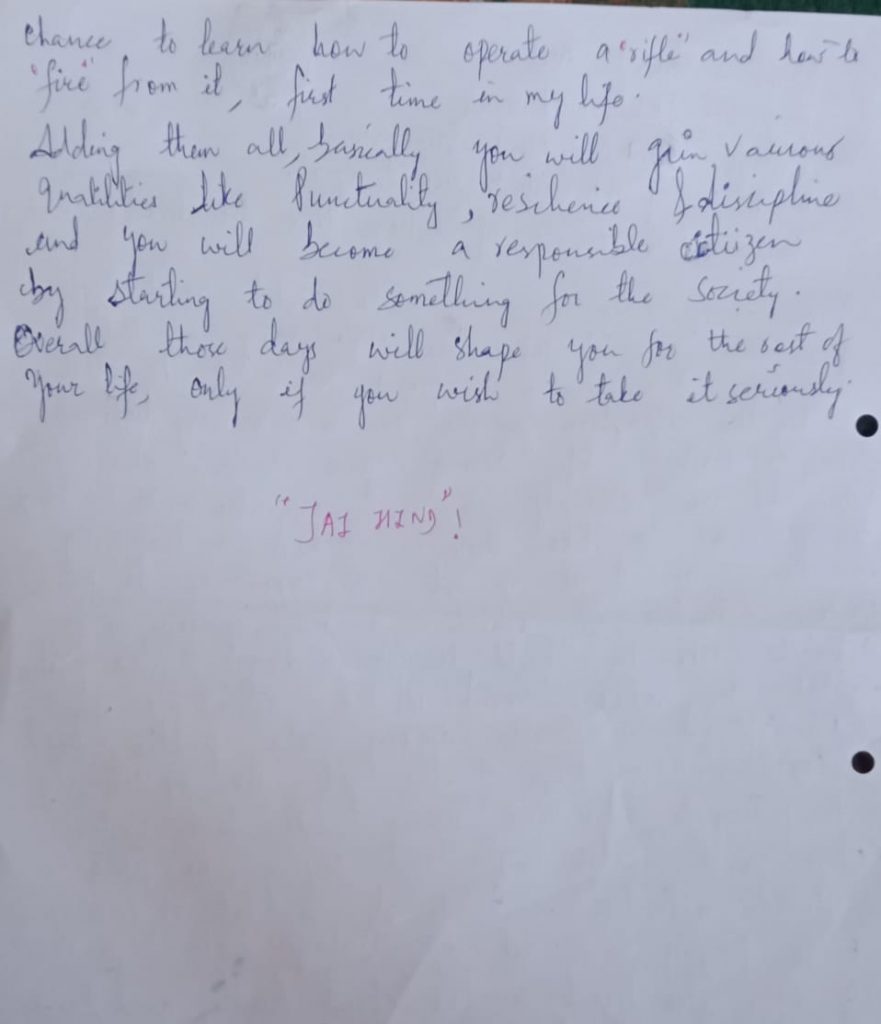 chance to learn how to operate a "rifle" and how to
"fire" from it, first time in my life.
Adding them all, basically you will gain vaurous
Quatilities like Punctuality, resilience & discipline
and you will become a responsible citiizen
by starting to do something for the society.
Overall those days will shape you for the rest of
Your life, only if you wish to take it seriously.
"JAI HIND"!